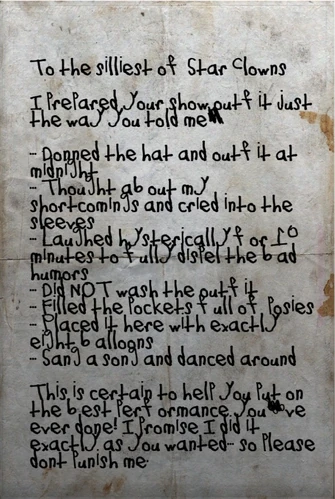 To the silliest of Star Clowns
I Prepared your show outfit just
the way you told me
- Donned the hat and outfit at
midnight
- Thought about my
shortcomings and cried into the
sleeves
- Laughed hysterically for 10
minutes to fully dispel the bad
humors
- Did NOT wash the outfit
- Filled the Pockets full of Posies
- Placed it here with exactly
eight balloons
- Sang a song and danced around
This is certain to help you Put on
the best Performance you ve
ever done! I Promise I did it
exactly as you wanted- so Please
dont Punish me.